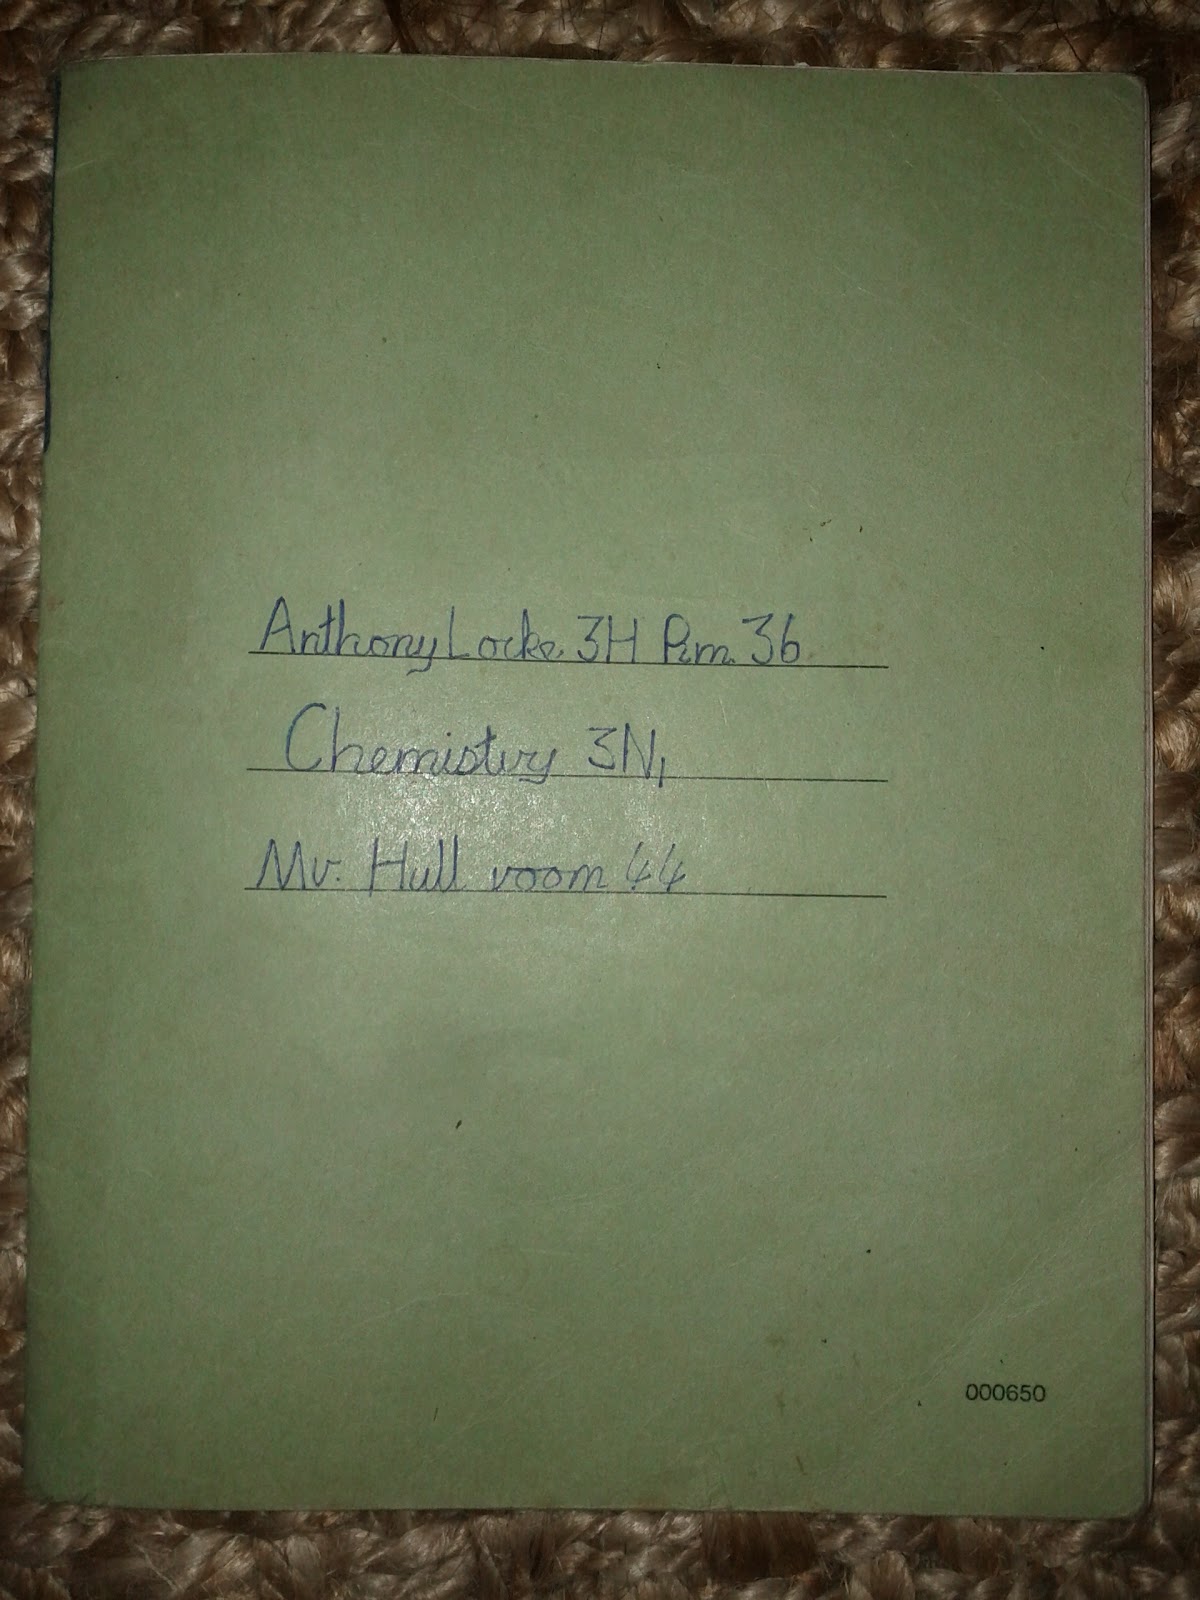 Anthony Locke 3H Rm. 36
Chemistry 3N1
Mr. Hull room 44
000650